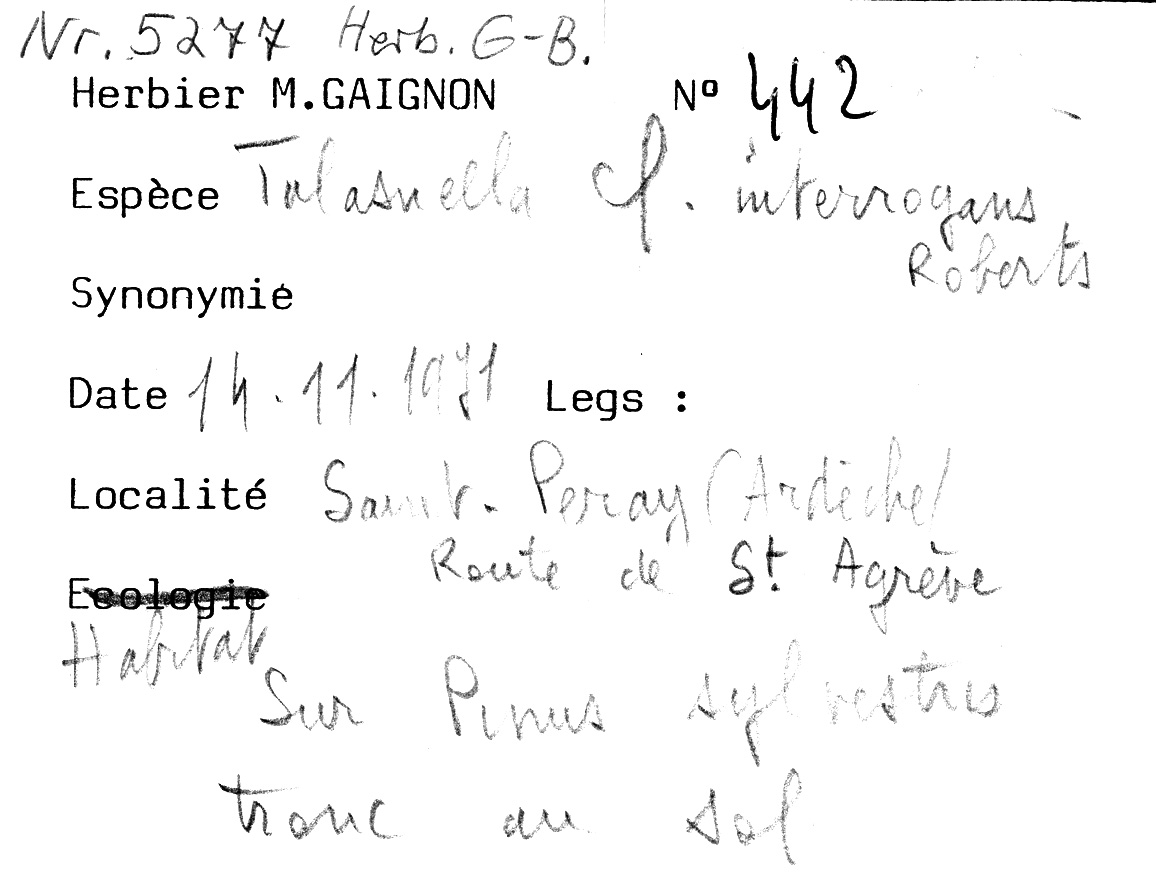 Nr. 5277 Herb. G-B.
Herbier M.GAIGNON Nº 442
Espèce Tulasnella cf. interrogans
Roberts
Synonymie
Date 14.11.1971 Legs :
Localité Saint-Peray (Ardèche)
Route de St. Agrève
Ecologie
Habitat
Sur Pinus sylvestris
tronc au sol